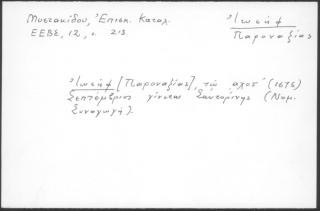 Μυστακίδου, Ἐπισκ. Καταλ.
ΕΕΒΣ, 12, σ. 213.
Ἰωσήφ
Παροναξίας
Ἰωσήφ [Παροναξίας], τῷ αχοε΄ (1675)
Σεπτέμβριος γίνεται Σαντορίνης (Νομ.
Συναγωγή).